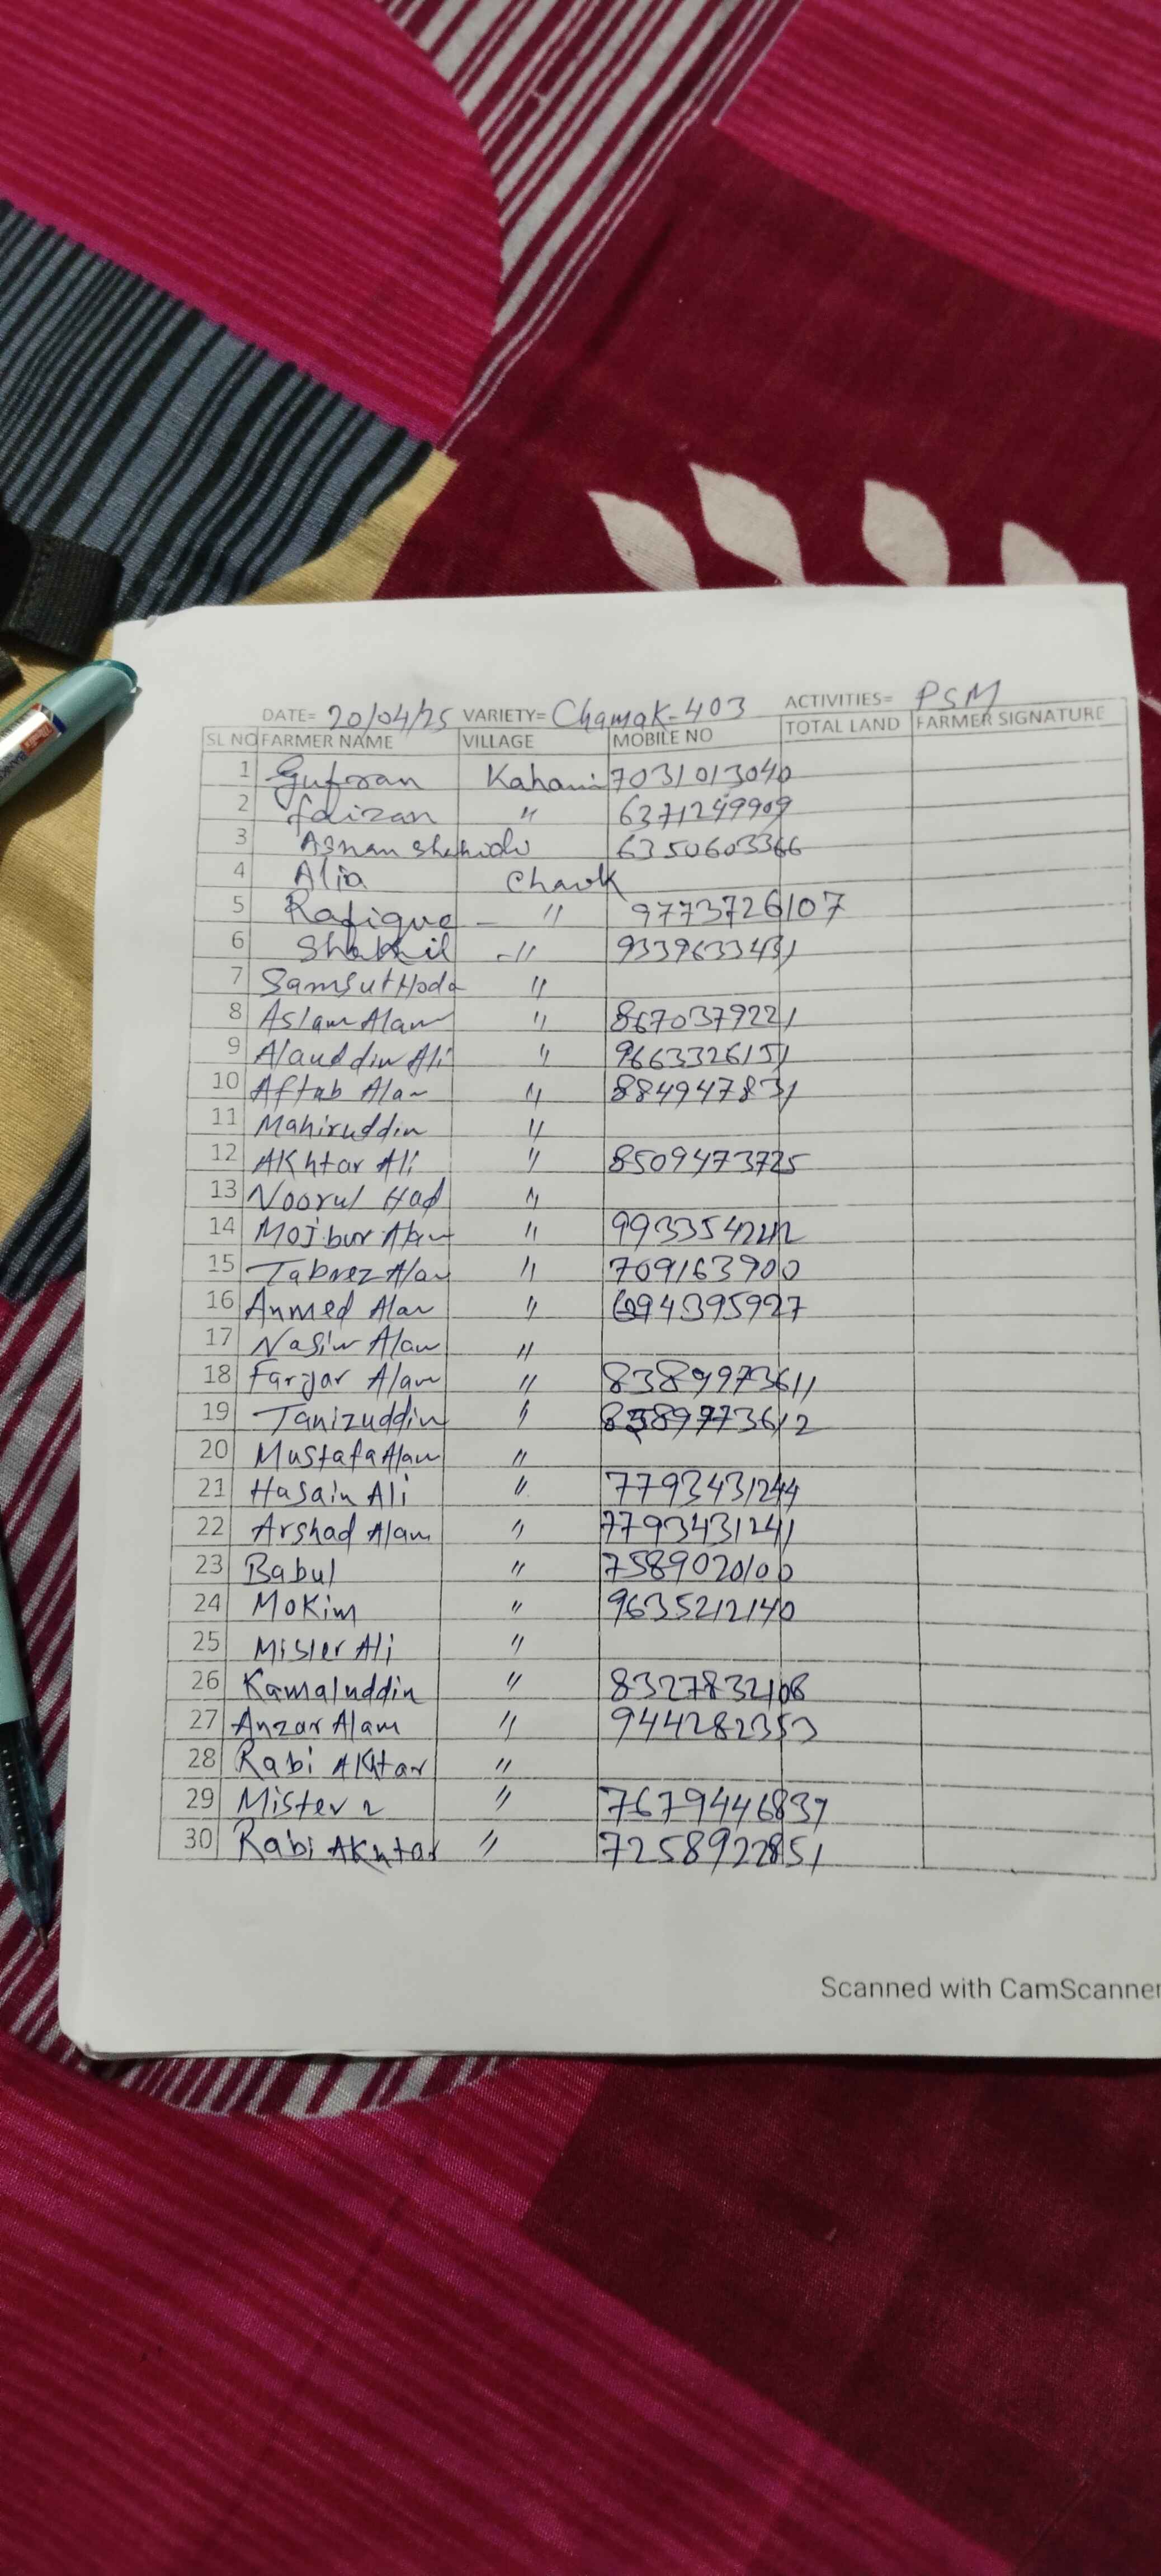 DATE= 20/04/25 VARIETY= Chamak-403 ACTIVITIES= PSM
SL NO FARMER NAME VILLAGE MOBILE NO TOTAL LAND FARMER SIGNATURE
1 Gufran Kahani 7031013040
2 faizan " 6371249909
3 Asnan Shahidu 6350603366
4 Alia Chawk
5 Rafique - " 9773726107
6 Shakil -" 9339633431
7 Samsut Hoda "
8 Aslam Alam " 8670379221
9 Alauddin Ali " 9663326151
10 Aftab Alam " 884947831
11 Mahiruddin "
12 AKhtar Ali " 8509473725
13 Noorul Had "
14 Mojbur Alam " 9933542212
15 Tabrez Alam " 709163900
16 Anmed Alam " 694395927
17 Nasir Alam "
18 Farjar Alam " 8389973611
19 Tanizuddin " 8389973612
20 Mustafa Alam "
21 Hasain Ali " 7793431244
22 Arshad Alam " 7793431241
23 Babul " 7589020100
24 MoKim " 9635212140
25 Misler Ali "
26 Kamaluddin " 8327832108
27 Anzar Alam " 944282353
28 Rabi AKhtar "
29 Mister 2 " 7679446837
30 Rabi AKhtar " 7258922851
Scanned with CamScanner